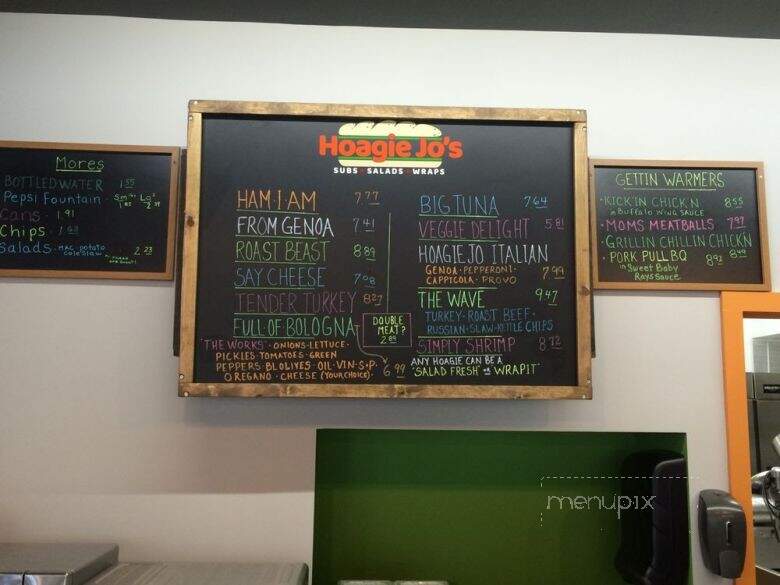 Mores
BOTTLED WATER 1.55
Pepsi Fountain Sm Lg
Cans 1.91
Chips
Salads MAC, POTATO 2.23
Coleslaw
Hoagie Jo's
SUBS SALADS WRAPS
HAM·I·AM 7.77
FROM GENOA 7.41
ROAST BEAST 8.89
SAY CHEESE
TENDER TURKEY 8.27
FULL OF BOLOGNA
DOUBLE
MEAT?
2.89
6.99
"THE WORKS"· ONIONS·LETTUCE·
PICKLES·TOMATOES·GREEN
PEPPERS·BL OLIVES·OIL·VIN·S+P·
OREGANO·CHEESE (YOUR CHOICE)·
BIG TUNA 7.64
VEGGIE DELIGHT 5.81
HOAGIE JO ITALIAN
GENOA·PEPPERONI· 7.99
CAPPICOLA·PROVO
THE WAVE 9.47
TURKEY·ROAST BEEF·
RUSSIAN·SLAW·KETTLE CHIPS
SIMPLY SHRIMP 8.72
ANY HOAGIE CAN BE A
"SALAD FRESH" WRAP IT
GETTIN WARMERS
·KICK'IN CHICK'N 8.55
in BUFFALO WING SAUCE
·MOMS MEATBALLS 7.97
·GRILLIN CHILLIN CHICK'N
8.49
·PORK PULL BQ 8.92
in SWEET BABY
RAYS SAUCE
menupix